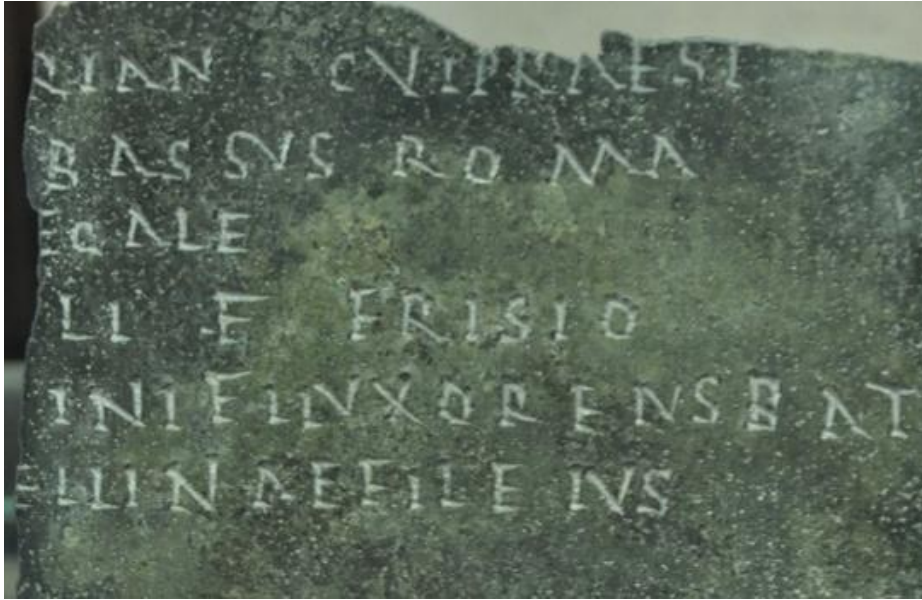 CIAN CVIPRAEST
BASSVS ROMA
EGALE
LI F FRISIO
INIFLIVXORENSBAT
ELLINAEFILEIVS